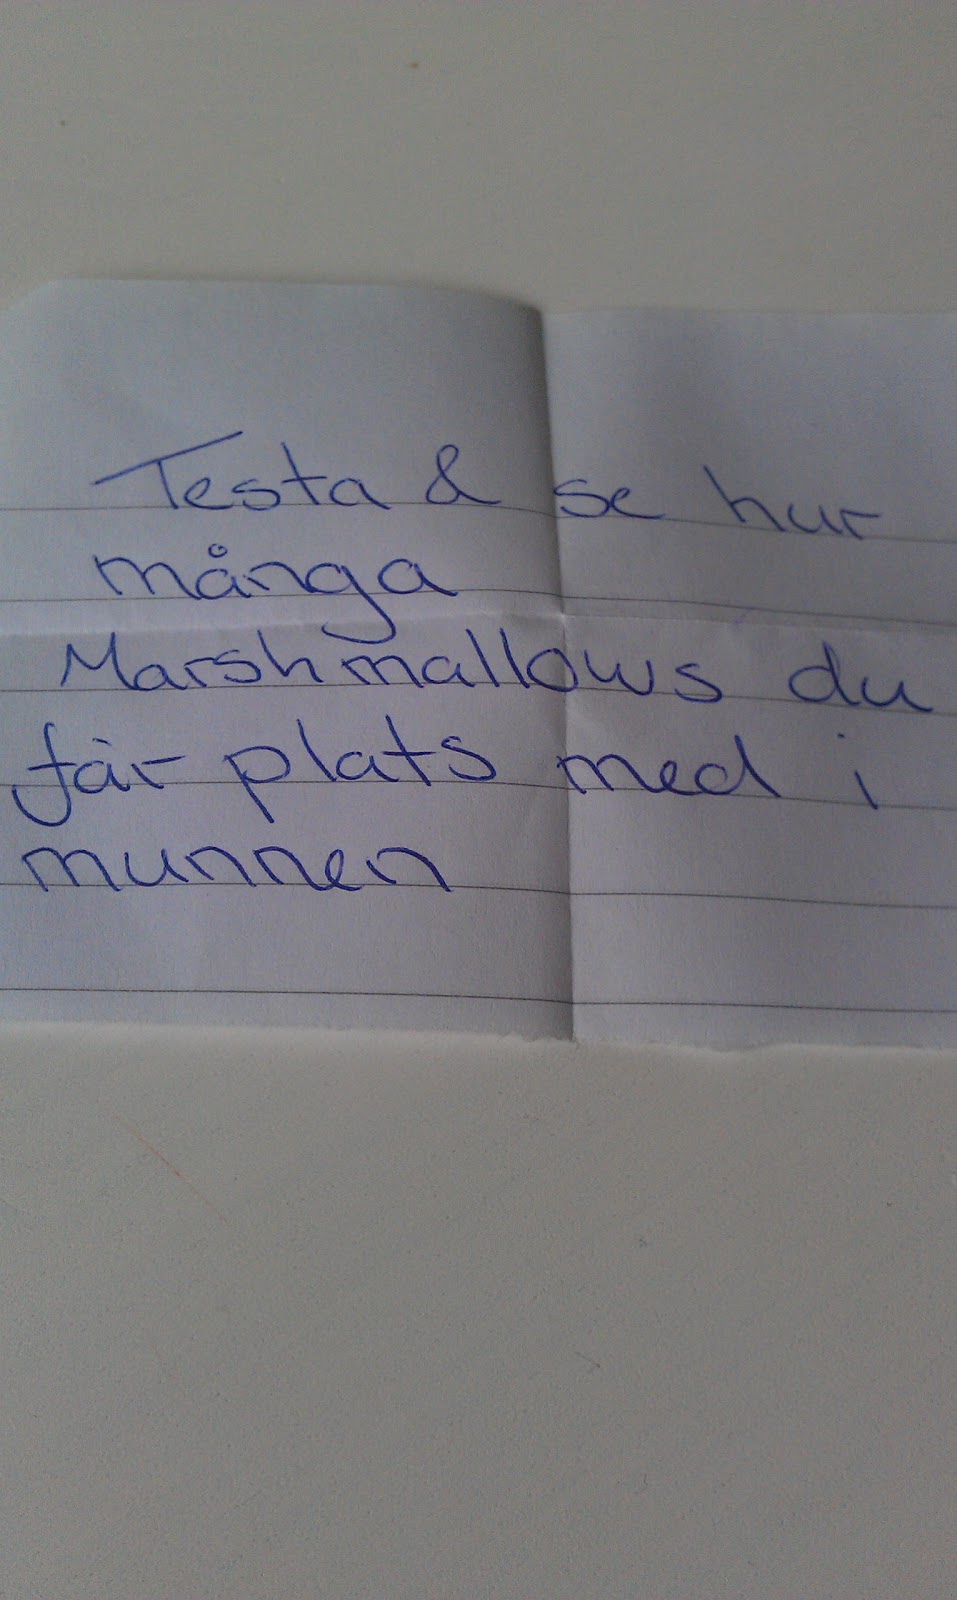 Testa & se hur
många
Marshmallows du
får plats med i
munnen